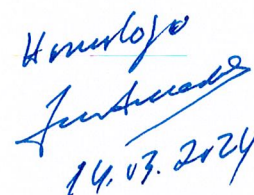 Homologo
14.03.2024